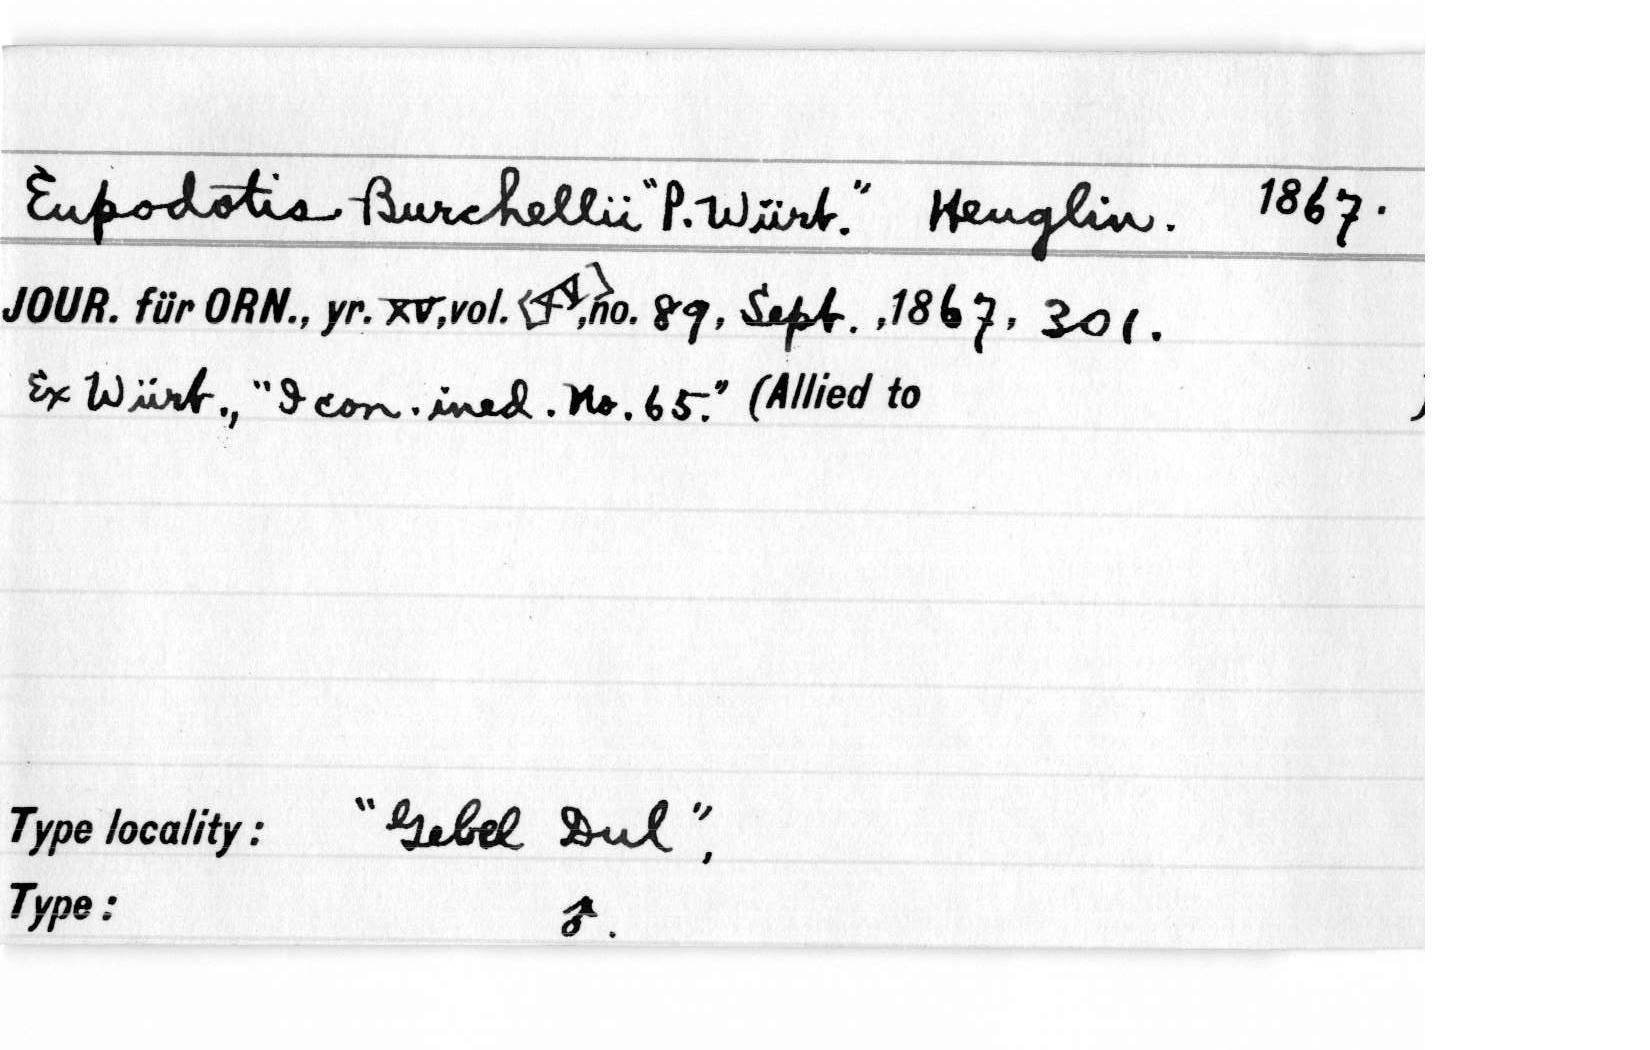 Eupodotis Burchellii "P. Würt." Heuglin. 1867.
JOUR. für ORN., yr. XV, vol. <XV>, no. 89, Sept., 1867, 301.
Ex Würt., "Icon. ined. No. 65." (Allied to )
Type locality: "Gebel Dul",
Type: ♂.